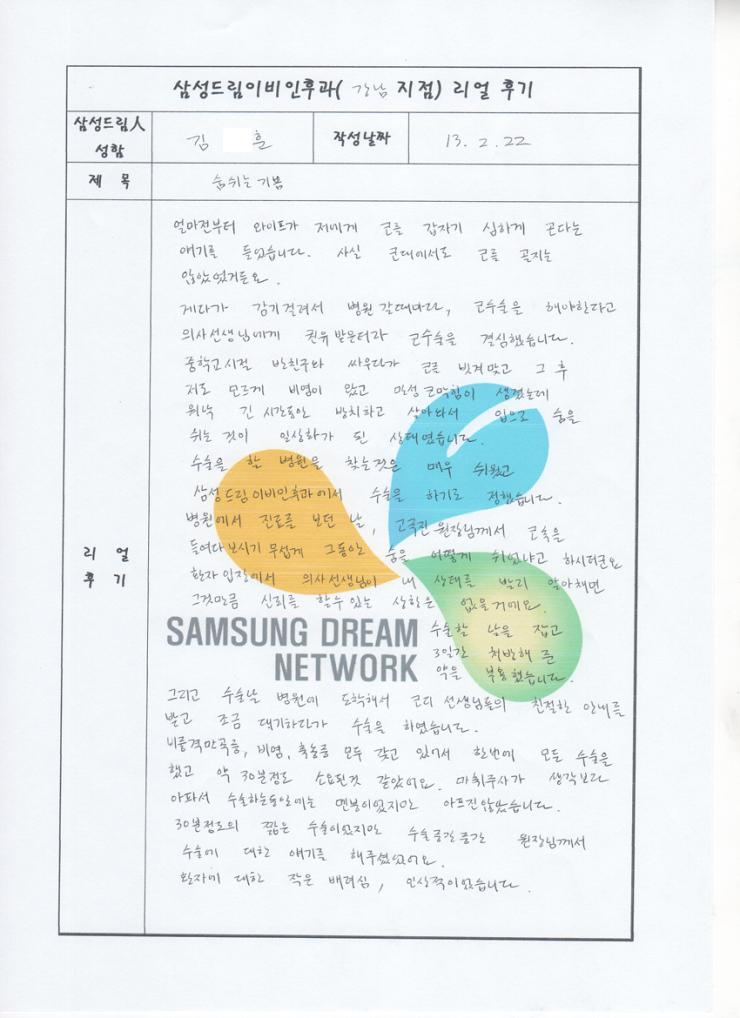 삼성드림이비인후과( 강남 지점) 리얼 후기
삼성드림人 성함
김 훈
작성날짜
13. 2. 22
제 목
숨쉬는 기쁨
리 얼 후 기
얼마전부터 와이프가 저에게 코를 갑자기 심하게 곤다는
얘기를 들었습니다. 사실 군대에서도 코를 골지는
않았었거든요.
게다가 감기걸려서 병원갈때마다, 코수술을 해야한다고
의사선생님에게 권유받은터라 코수술을 결심했습니다.
중학교시절 반친구와 싸우다가 코를 빗겨맞고 그 후
저도 모르게 비염이 왔고 만성코막힘이 생겼는데
워낙 긴 시간동안 방치하고 살아와서 입으로 숨을
쉬는 것이 일상화가 된 상태였습니다.
수술을 할 병원을 찾는것은 매우 쉬웠고
삼성드림이비인후과에서 수술을 하기로 정했습니다.
병원에서 진료를 보던 날, 고국진원장님께서 코속을
들여다보시기 무섭게 그동안 숨을 어떻게 쉬었냐고 하시더군요
환자입장에서 의사선생님이 내 상태를 빨리 알아채면
그것만큼 신뢰를 할수있는 상황은 없을거예요.
SAMSUNG DREAM
NETWORK
수술할 날을 잡고
3일간 처방해 준
약을 복용했습니다.
그리고 수술날 병원에 도착해서 코디 선생님들의 친절한 안내를
받고 조금 대기하다가 수술을 하였습니다.
비중격만곡증, 비염, 축농증 모두 갖고 있어서 한번에 모든 수술을
했고 약 30분정도 소요된것 같았어요. 마취주사가 생각보다
아파서 수술하는동안에는 멘붕이었지만 아프진않았습니다.
30분정도의 짧은 수술이었지만 수술중간중간 원장님께서
수술에 대한 얘기를 해주셨었어요.
환자에 대한 작은 배려심, 인상적이었습니다.